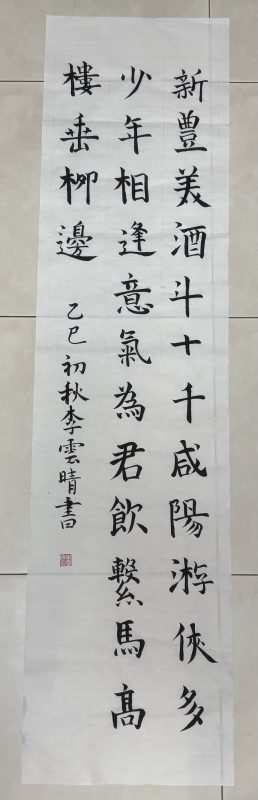 新豊美酒斗十千咸陽游俠多
少年相逢意氣為君飲繫馬高
樓垂柳邊
乙巳初秋李雲晴書